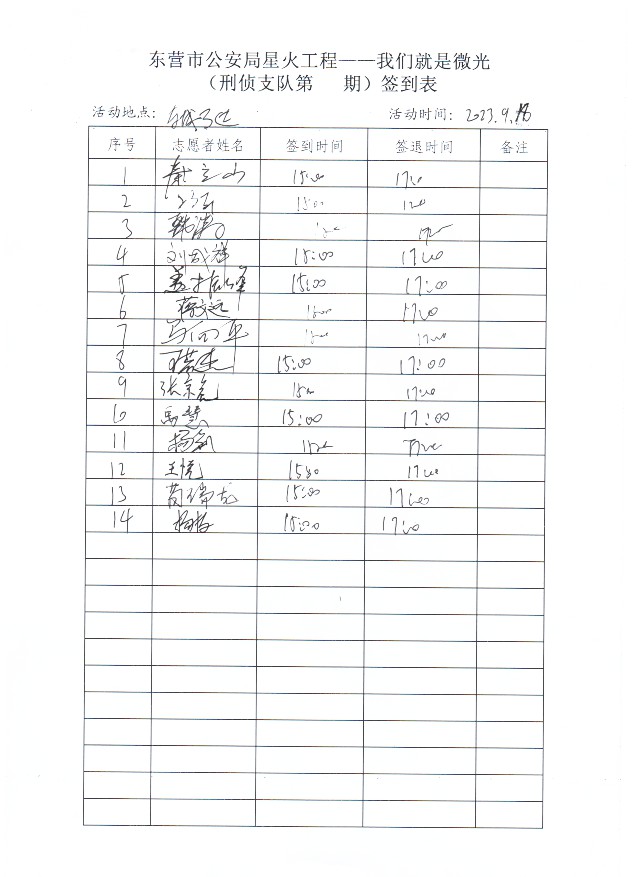 东营市公安局星火工程——我们就是微光
（刑侦支队第 期）签到表
活动地点： 活动时间：2023.9.
序号 志愿者姓名 签到时间 签退时间 备注
1 15:00 17:00
2 15:00 17:00
3 韩涛 15:00 17:00
4 刘成祥 15:00 17:00
5 15:00 17:00
6 蒋文远 15:00 17:00
7 15:00 17:00
8 15:00 17:00
9 张京亮 15:00 17:00
10 马慧 15:00 17:00
11 15:00 17:00
12 王悦 1500 17:00
13 苟瑞龙 15:00 17:00
14 15:00 17:00